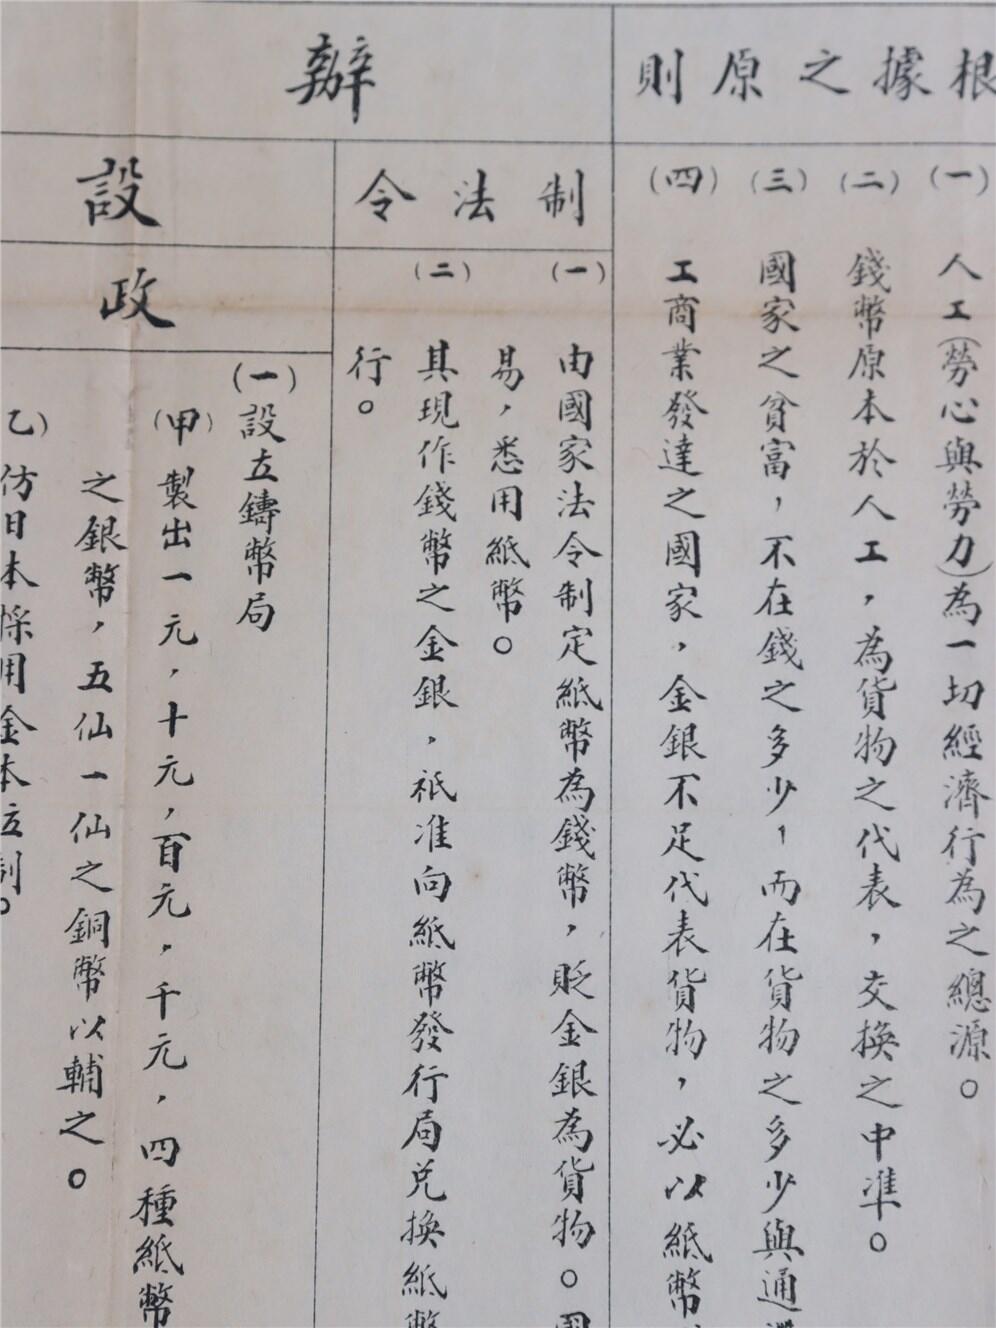 根據之原則
(一)
人工(勞心與勞力)為一切經濟行為之總源。
(二)
錢幣原本於人工，為貨物之代表，交換之中準。
(三)
國家之貧富，不在錢之多少，而在貨物之多少與通
(四)
工商業發達之國家，金銀不足代表貨物，必以紙幣
辦
制法令
(一)
由國家法令制定紙幣為錢幣，貶金銀為貨物。國
易，悉用紙幣。
(二)
其現作錢幣之金銀，祇准向紙幣發行局兌換紙幣
行。
設
政
(一)設立鑄幣局
(甲)製出一元，十元，百元，千元，四種紙幣
之銀幣，五仙一仙之銅幣以輔之。
乙)仿日本採用金本立制。